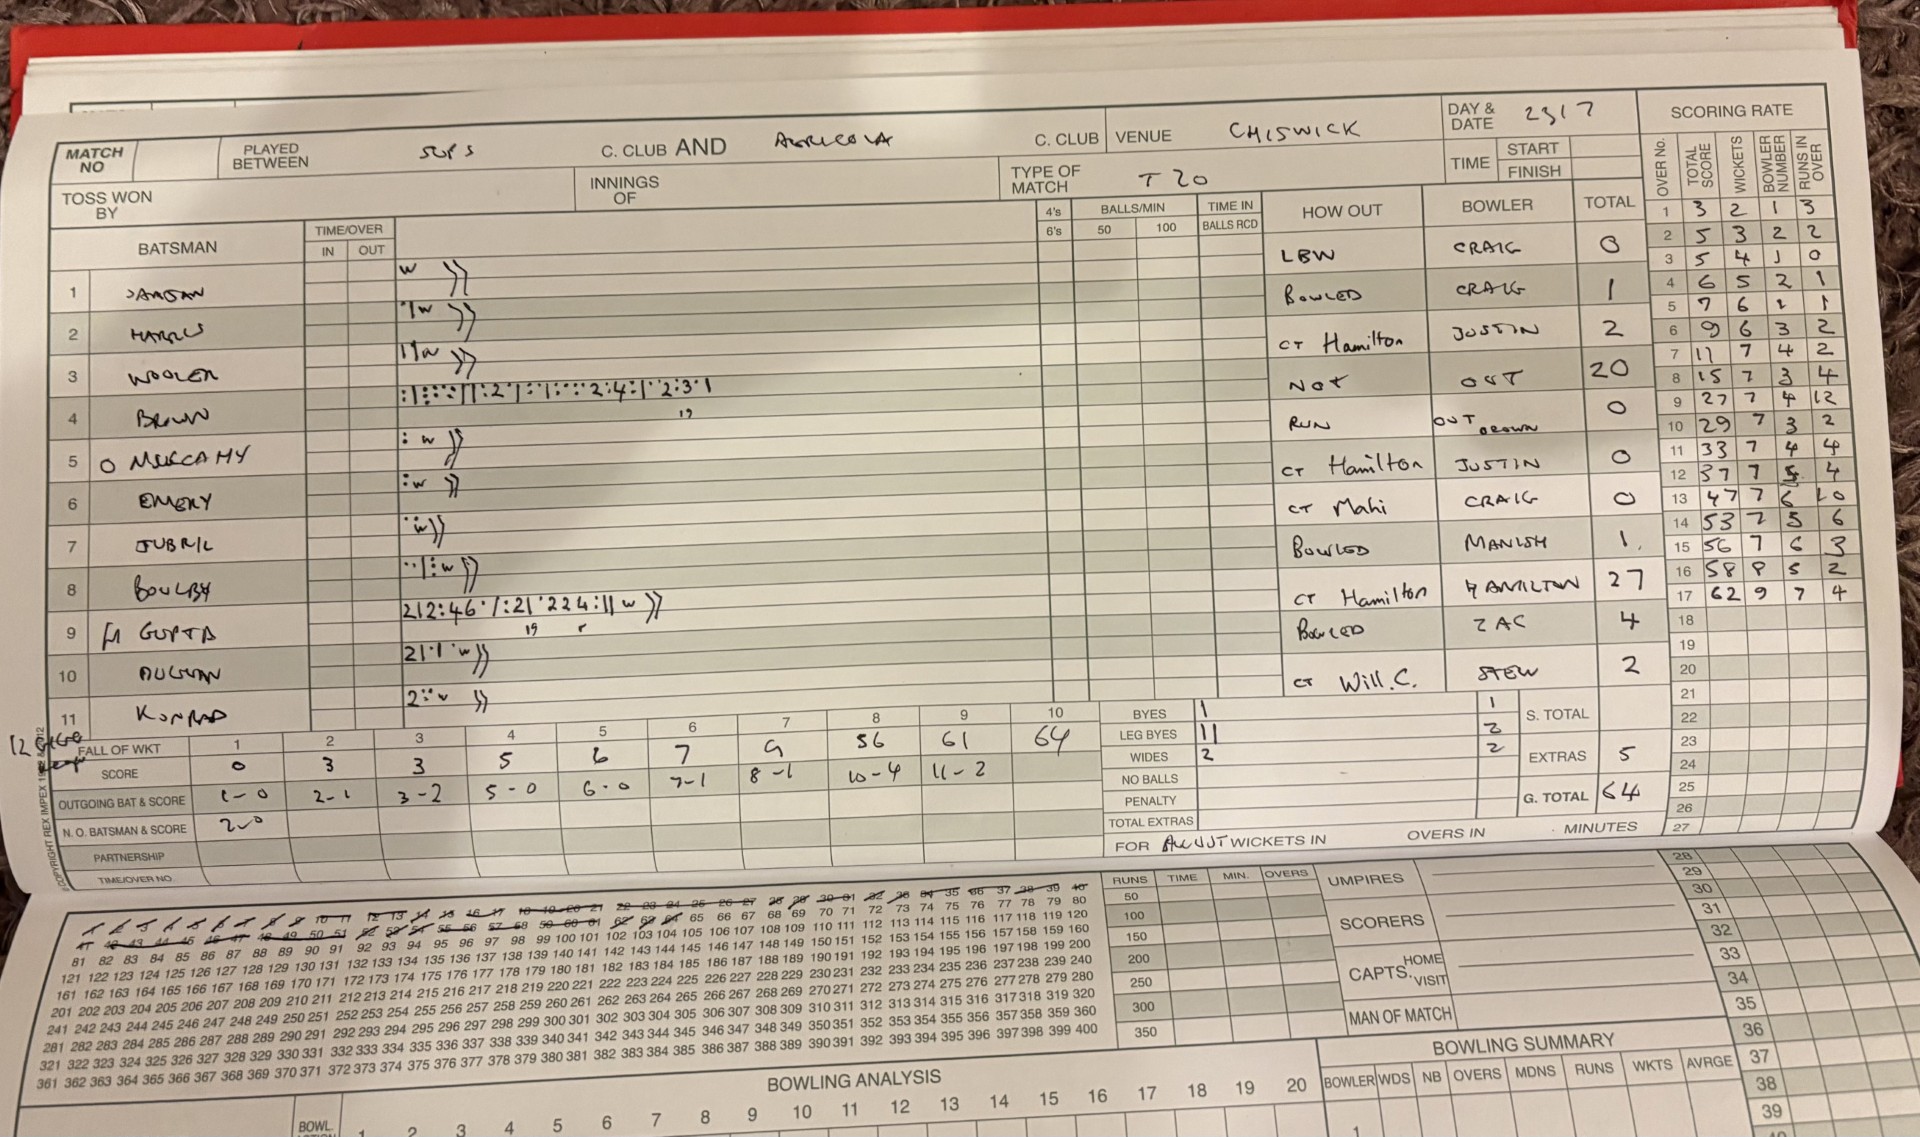 MATCH NO PLAYED BETWEEN SUPS C. CLUB AND AGRICOLA C. CLUB VENUE CHISWICK DAY & DATE 23/7 SCORING RATE
TOSS WON BY INNINGS OF TYPE OF MATCH T20 TIME START FINISH
BATSMAN TIME/OVER IN OUT 4's 6's BALLS/MIN 50 100 TIME IN BALLS RCD HOW OUT BOWLER TOTAL
OVER No. TOTAL SCORE WICKETS BOWLER NUMBER RUNS IN OVER
1 LBW CRAIG 0
2 HARRIS BOWLED CRAIG 1
3 WOOLER CT Hamilton JUSTIN 2
4 BROWN NOT OUT 20
19
5 RUN OUT BROWN 0
6 EMERY CT Hamilton JUSTIN 0
7 JUBRIL CT Mahi CRAIG 0
8 BOULBY BOWLED MANISH 1
9 GUPTA 212:46 CT Hamilton HAMILTON 27
19
10 BOWLED ZAC 4
11 KONRAD CT Will.C. STEW 2
1 3 2 1 3
2 5 3 2 2
3 5 4 1 0
4 6 5 2 1
5 7 6 1 1
6 9 6 3 2
7 11 7 4 2
8 15 7 3 4
9 27 7 4 12
10 29 7 3 2
11 33 7 4 4
12 37 7 5 4
13 47 7 6 10
14 53 7 5 6
15 56 7 6 3
16 58 8 5 2
17 62 9 7 4
18
19
20
21
22
23
24
25
26
27
FALL OF WKT 1 2 3 4 5 6 7 8 9 10
SCORE 0 3 3 5 6 7 9 56 61 64
OUTGOING BAT & SCORE 1-0 2-1 3-2 5-0 6-0 7-1 8-1 10-4 11-2
N. O. BATSMAN & SCORE 2-0
PARTNERSHIP
TIME/OVER NO.
BYES 1 1
LEG BYES 11 2
WIDES 2 2
NO BALLS
PENALTY
TOTAL EXTRAS
S. TOTAL
EXTRAS 5
G. TOTAL 64
FOR ALL OUT WICKETS IN OVERS IN MINUTES
1 2 3 4 5 6 7 8 9 10 11 12 13 14 15 16 17 18 19 20 21 22 23 24 25 26 27 28 29 30 31 32 33 34 35 36 37 38 39 40
41 42 43 44 45 46 47 48 49 50 51 52 53 54 55 56 57 58 59 60 61 62 63 64 65 66 67 68 69 70 71 72 73 74 75 76 77 78 79 80
81 82 83 84 85 86 87 88 89 90 91 92 93 94 95 96 97 98 99 100 101 102 103 104 105 106 107 108 109 110 111 112 113 114 115 116 117 118 119 120
121 122 123 124 125 126 127 128 129 130 131 132 133 134 135 136 137 138 139 140 141 142 143 144 145 146 147 148 149 150 151 152 153 154 155 156 157 158 159 160
161 162 163 164 165 166 167 168 169 170 171 172 173 174 175 176 177 178 179 180 181 182 183 184 185 186 187 188 189 190 191 192 193 194 195 196 197 198 199 200
201 202 203 204 205 206 207 208 209 210 211 212 213 214 215 216 217 218 219 220 221 222 223 224 225 226 227 228 229 230 231 232 233 234 235 236 237 238 239 240
241 242 243 244 245 246 247 248 249 250 251 252 253 254 255 256 257 258 259 260 261 262 263 264 265 266 267 268 269 270 271 272 273 274 275 276 277 278 279 280
281 282 283 284 285 286 287 288 289 290 291 292 293 294 295 296 297 298 299 300 301 302 303 304 305 306 307 308 309 310 311 312 313 314 315 316 317 318 319 320
321 322 323 324 325 326 327 328 329 330 331 332 333 334 335 336 337 338 339 340 341 342 343 344 345 346 347 348 349 350 351 352 353 354 355 356 357 358 359 360
361 362 363 364 365 366 367 368 369 370 371 372 373 374 375 376 377 378 379 380 381 382 383 384 385 386 387 388 389 390 391 392 393 394 395 396 397 398 399 400
RUNS TIME MIN. OVERS
50
100
150
200
250
300
350
UMPIRES
SCORERS
CAPTS. HOME VISIT
MAN OF MATCH
28
29
30
31
32
33
34
35
36
37
38
39
BOWLING ANALYSIS
BOWL. 1 2 3 4 5 6 7 8 9 10 11 12 13 14 15 16 17 18 19 20
BOWLING SUMMARY
BOWLER WDS NB OVERS MDNS RUNS WKTS AVRGE
1